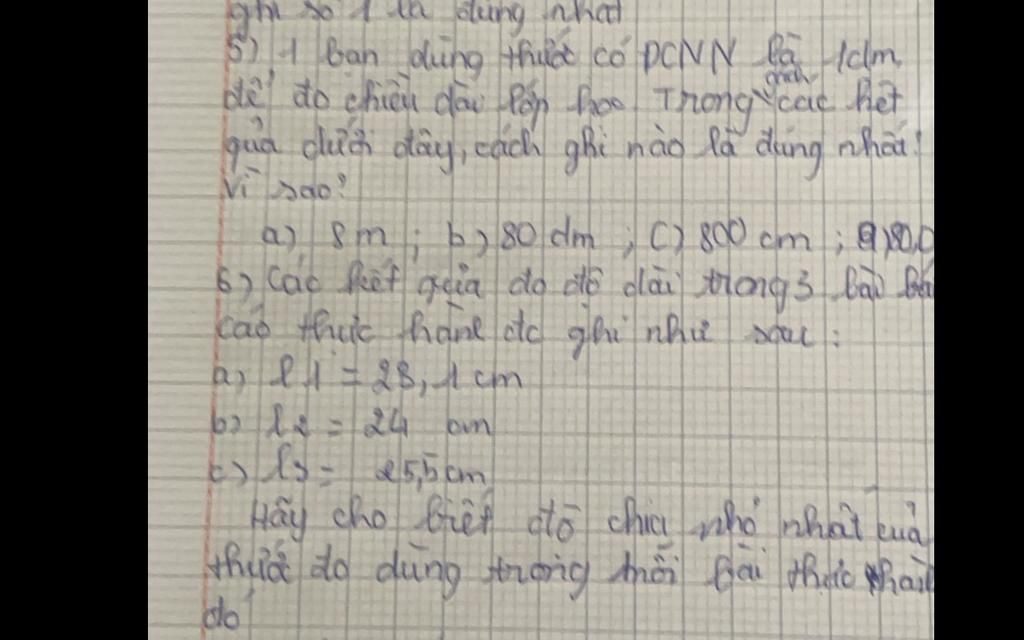 ghi số 1 là đúng nhất
5) 1 bạn dùng thước có ĐCNN là 1dm
để đo chiều dài lớp học Trong cách các kết
quả dưới đây, cách ghi nào là đúng nhất?
Vì sao?
a) 8m ; b) 80 dm ; c) 800 cm ; d) 80,0
6) Các kết quả đo độ dài trong 3 bài bá
cáo thực hành đc ghi như sau :
a) l1 = 23,1 cm
b) l2 = 24 cm
c) l3 = 25,5 cm
Hãy cho biết độ chia nhỏ nhất của
thước đo dùng trong mỗi bài thực hàn
đó